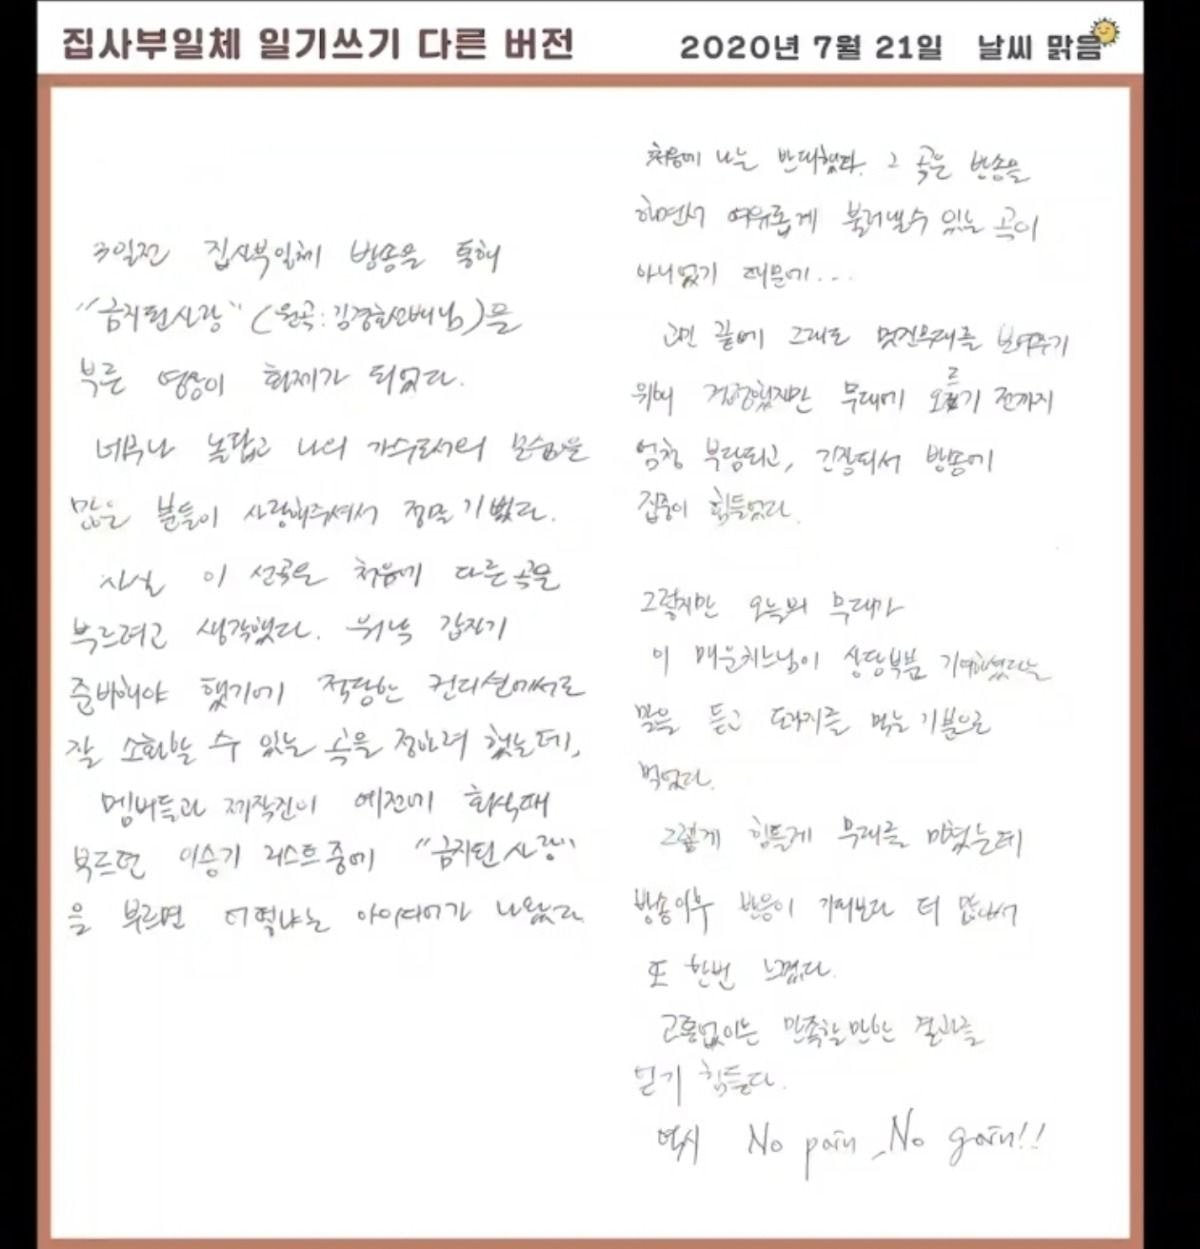 집사부일체 일기쓰기 다른 버전
2020년 7월 21일 날씨 맑음
3일전 집사부일체 방송을 통해
"금지된사랑" (원곡:김경호선배님)을
부른 영상이 화제가 되었다.
너무나 놀랍고 나의 가수로서의 모습을
많은 분들이 사랑해주셔서 정말 기뻤다.
사실 이 선곡은 처음에 다른곡을
부르려고 생각했다. 워낙 갑자기
준비해야 했기에 적당한 컨디션에서도
잘 소화할 수 있는 곡을 정하려 했는데,
멤버들과 제작진이 예전에 회식때
부르던 이승기 리스트중에 "금지된 사랑"
을 부르면 어떻냐는 아이디어가 나왔다.
처음에 나는 반대했다. 그 곡은 방송을
하면서 여유롭게 불러낼수 있는 곡이
아니었기 때문에...
고민 끝에 그래도 멋진무대를 보여주기
위해 결정했지만 무대에 오르기 전까지
엄청 부담되고, 긴장되서 방송에
집중이 힘들었다.
그렇지만 오늘의 무대가
이 매운 상당부분 기여하셨다는
말을 듣고 먹는 기분으로
먹었다.
그렇게 힘들게 무대를 마쳤는데
방송이후 반응이 기대보다 더 많아서
또 한번 느꼈다.
고통없이는 만족할만한 결과를
얻기 힘들다.
역시 No pain, No gain!!